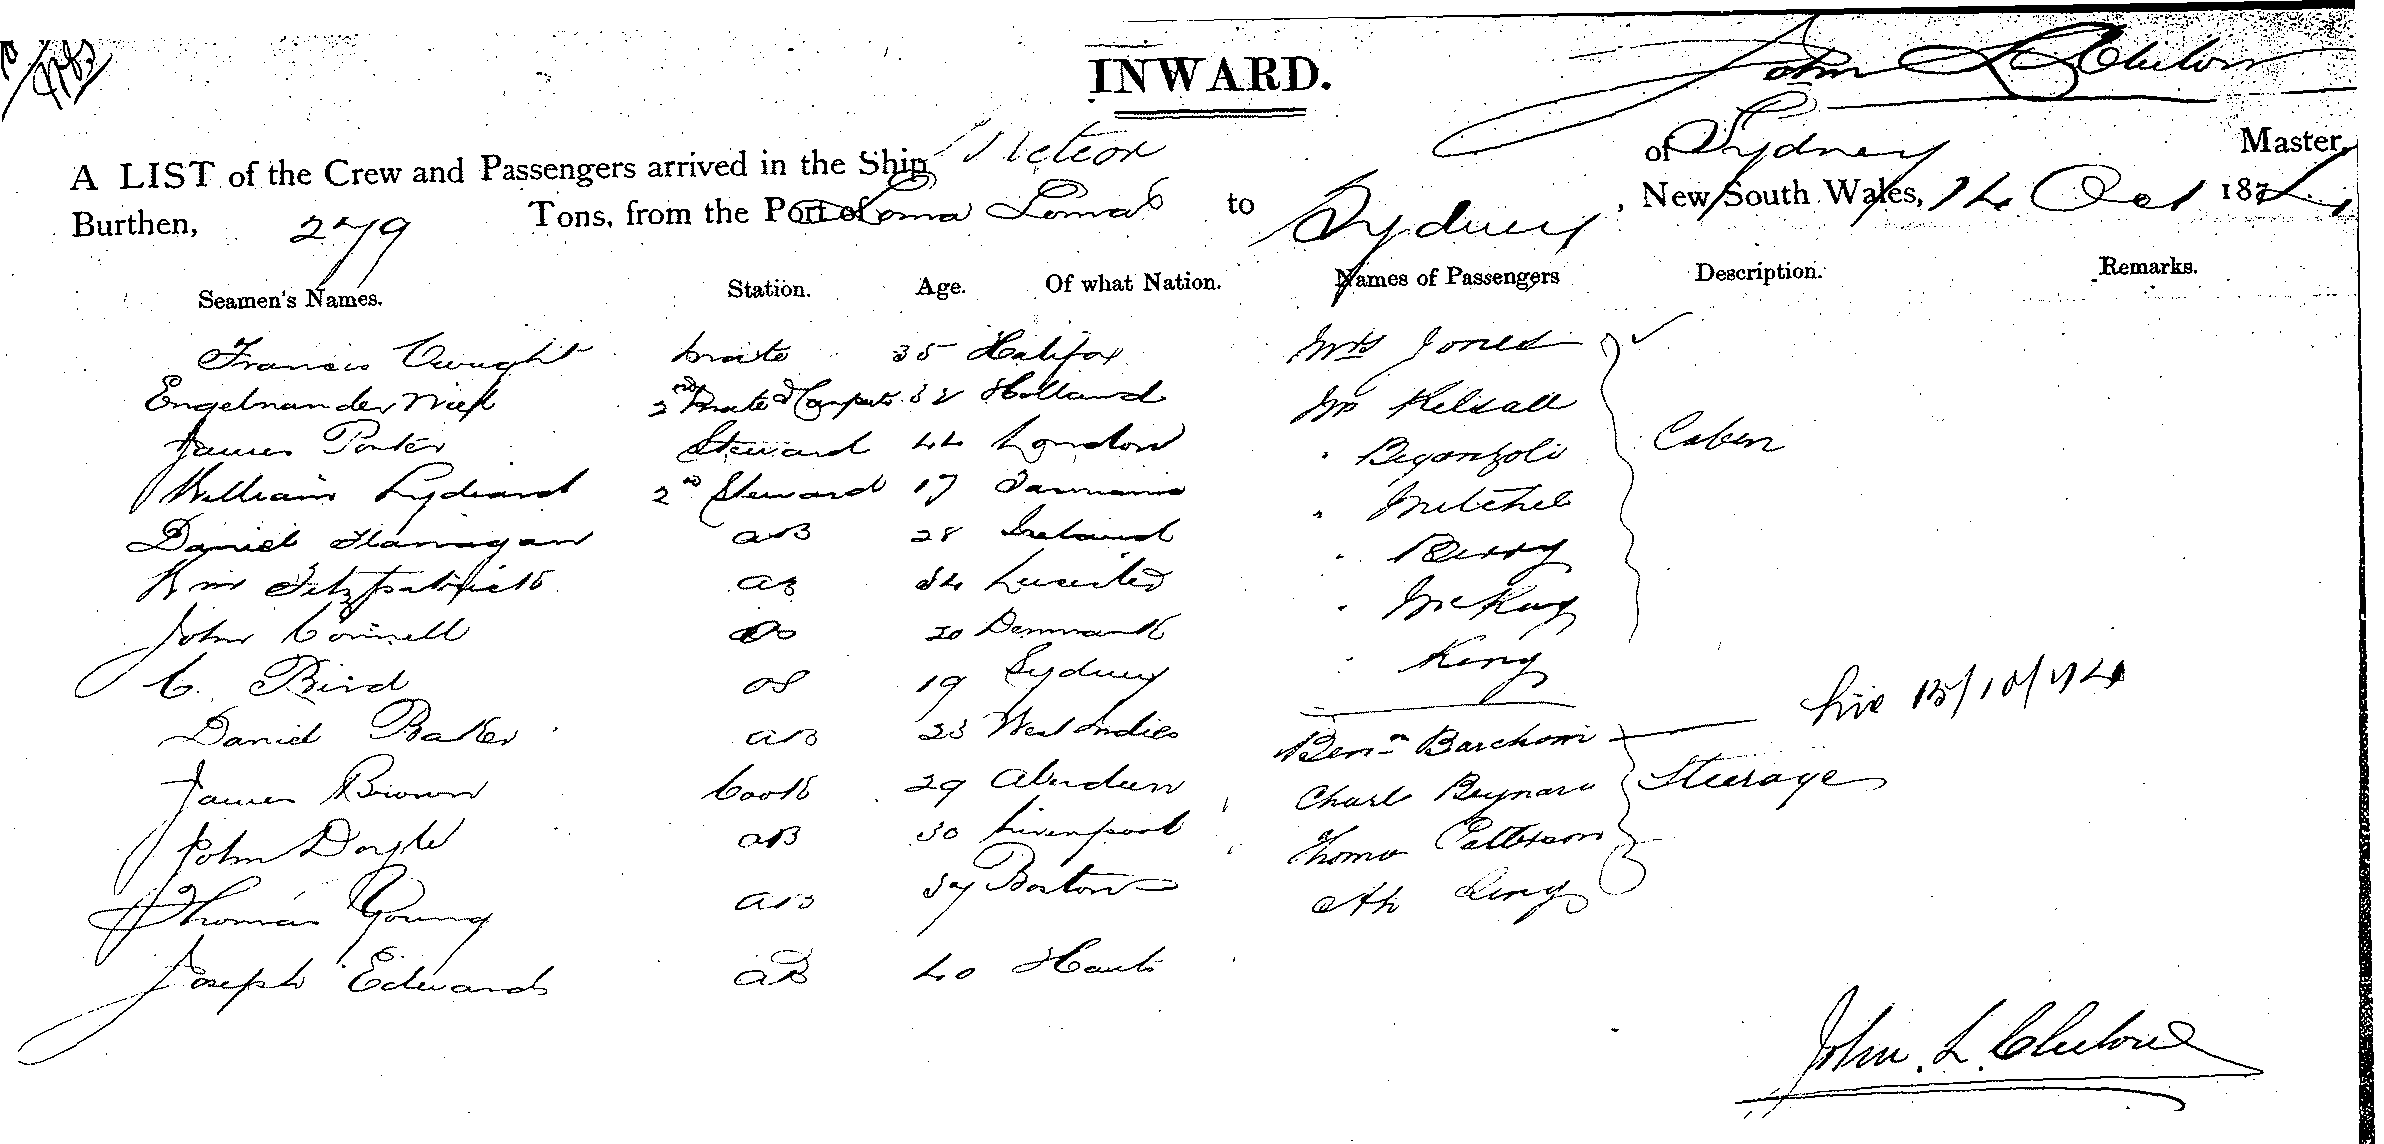 INWARD.
John L Clulow
A LIST of the Crew and Passengers arrived in the Ship Meteor of Sydney Master,
Burthen, 279 Tons, from the Port of Loma Loma to Sydney, New South Wales, 14 Oct 1874
Seamen's Names. Station. Age. Of what Nation. Names of Passengers Description. Remarks.
Francis mate 35 Halifax Mrs Jones
2nd Mate & 32 Holland Mr Kelsall
James Porter Steward 44 London " Cabin
William Lydiard 2nd Steward 17 Tasmania " Mitchel
Daniel Flanagan AB 28 Ireland " Berry
Wm Fitzpatrick AB 34 " McKay
John Connell 20 Denmark
C. Bird OS 19 Sydney " King
Daniel Baker AB 23 West Indies Benn 15/10/74
James Brown Cook 29 Aberdeen Steerage
John Doyle AB 30 Liverpool Thomas Patterson
Thomas Young AB 37 Boston Ah
Joseph Edwards AB 40 Hants
John. L. Clulow